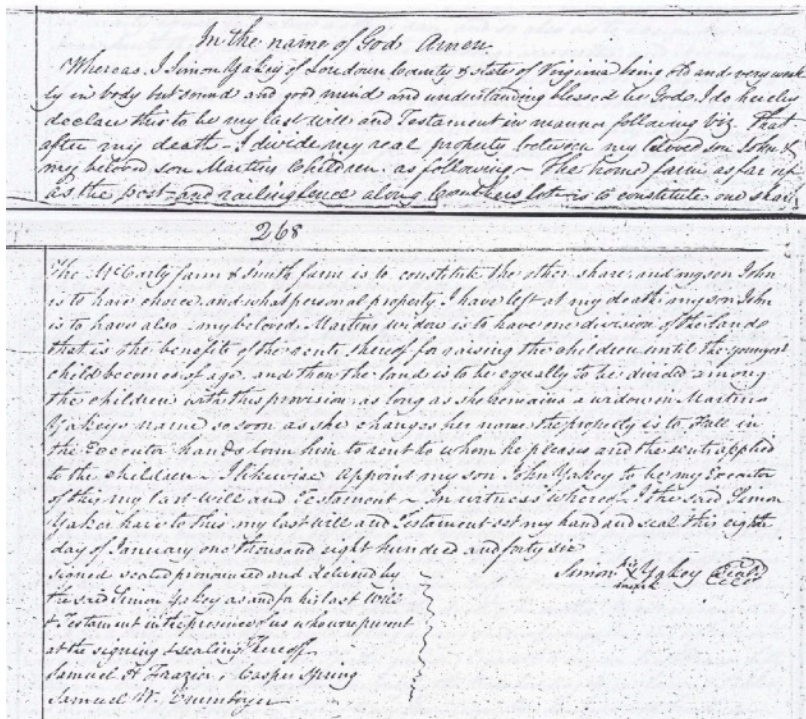 In the name of God Amen
Whereas I Simon Yakey of Loudoun County & state of Virginia being old and very weak
ly in body but sound and good mind and understanding blessed be God, I do hereby
declare this to be my last will and Testament in manner following viz. That
after my death - I divide my real property between my beloved son John &
my beloved son Martins Children. as following - The home farm as far up
as the post and railing fence along lot is to constitute one share
268
The McCarty farm & Smith farm is to constitute the other share, and my son John
is to have choice and what personal property I have left at my death my son John
is to have also. my beloved Martins widow is to have one division of the lands
that is the benefits of the rents thereof for raising the children until the youngest
child becomes of age and then the land is to be equally to be divided among
the children with this provision as long as she remains a widow in Martins
Yakeys name so soon as she changes her name the property is to fall in
the Executor hands him to rent to whom he pleases and the rents applied
to the children - I likewise Appoint my son John Yakey to be my Executor
of this my last will and Testament - In witness whereof I the said Simon
Yakey have to this my last will and Testament set my hand and seal this eighth
day of January one thousand eight hundred and forty six
Signed sealed pronounced and by
the said Simon Yakey as and for his last Will
& Testament in the presence of us who were present
at the signing & sealing thereof
Simon his X mark Yakey Seal
Samuel A Frazier, Casper Spring
Samuel W.